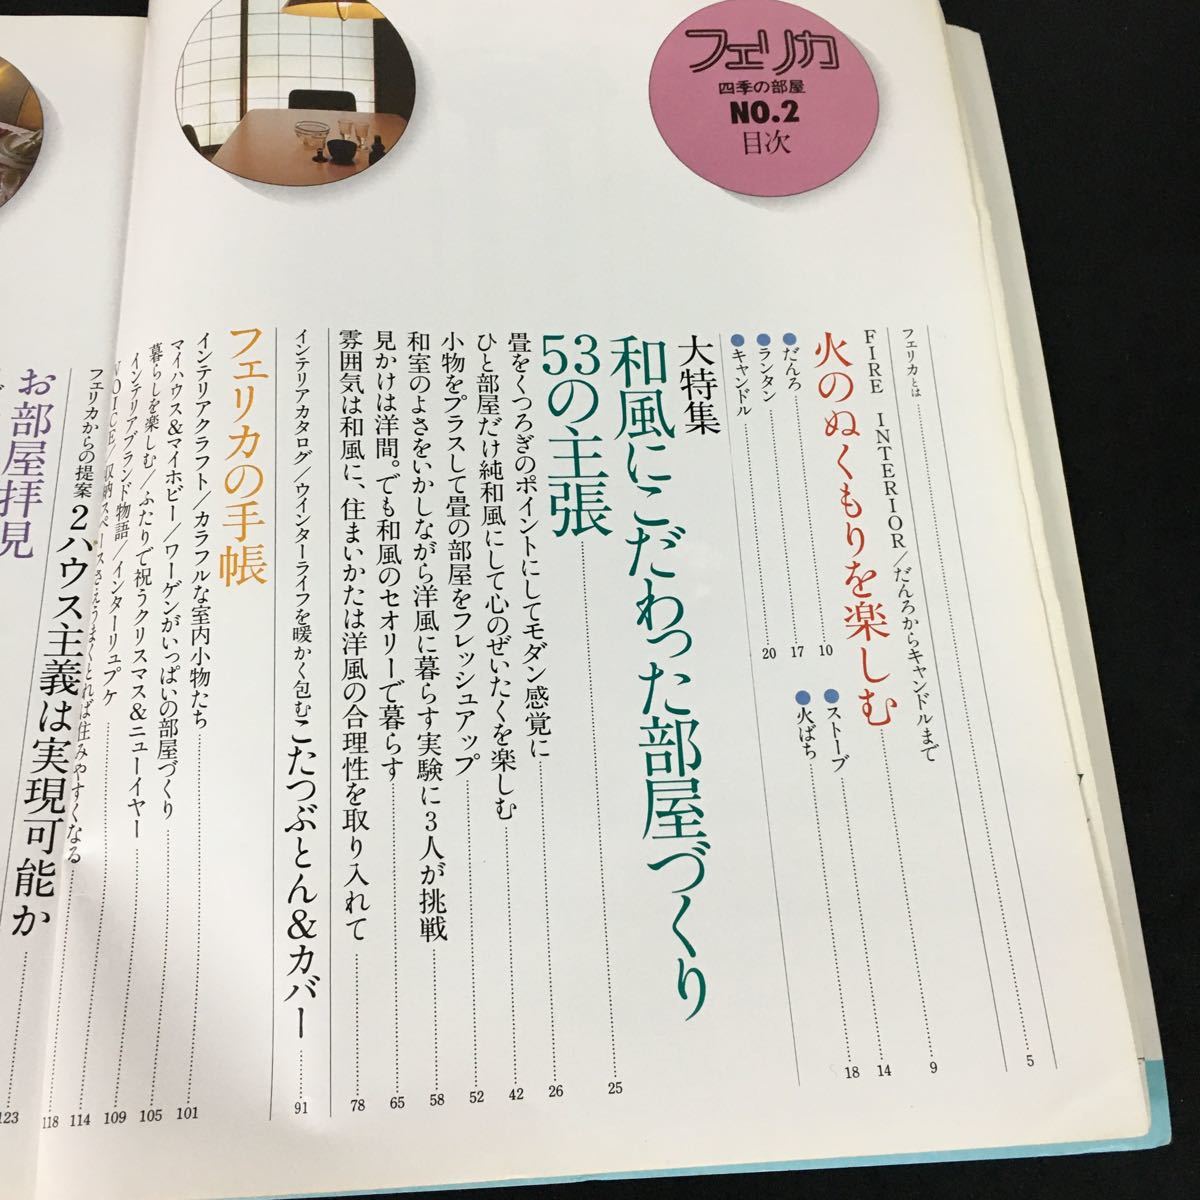 フェリカ
四季の部屋
NO.2
目次
フェリカとは 5
FIRE INTERIOR/だんろからキャンドルまで 9
火のぬくもりを楽しむ
●だんろ 10
●ストーブ 14
●ランタン 17
●火ばち 18
●キャンドル 20
大特集
和風にこだわった部屋づくり
53の主張 25
畳をくつろぎのポイントにしてモダン感覚に 26
ひと部屋だけ純和風にして心のぜいたくを楽しむ 42
小物をプラスして畳の部屋をフレッシュアップ 52
和室のよさをいかしながら洋風に暮らす実験に3人が挑戦 58
見かけは洋間。でも和風のセオリーで暮らす 65
雰囲気は和風に、住まいかたは洋風の合理性を取り入れて 78
インテリアカタログ/ウインターライフを暖かく包むこたつぶとん&カバー 91
フェリカの手帳
インテリアクラフト/カラフルな室内小物たち 101
マイハウス&マイホビー/ワーゲンがいっぱいの部屋づくり 105
暮らしを楽しむ/ふたりで祝うクリスマス&ニューイヤー 109
インテリアブランド物語/インターリュプケ 114
VOICE/収納スペースさえうまくとれば住みやすくなる 118
フェリカからの提案 2ハウス主義は実現可能か 123
お部屋拝見